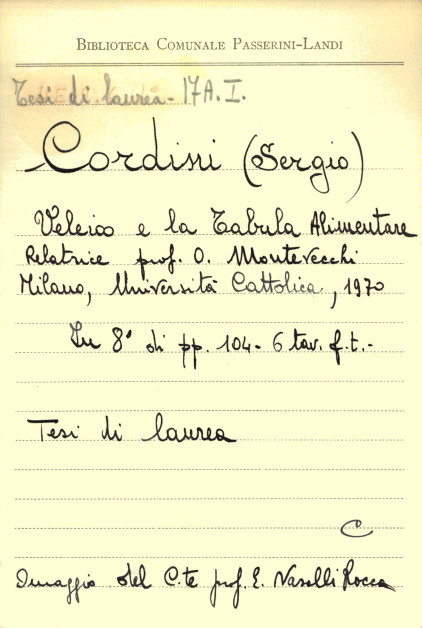 BIBLIOTECA COMUNALE PASSERINI-LANDI
Tesi di laurea - 17A.I.
Cordini (Sergio)
Veleia e la Tabula Alimentare
Relatrice prof. O. Montevecchi
Milano, Università Cattolica, 1970
In 8° di pp. 104 - 6 tav. f.t.-
Tesi di laurea
C
Omaggio del C.te prof. E. Nasalli Rocca